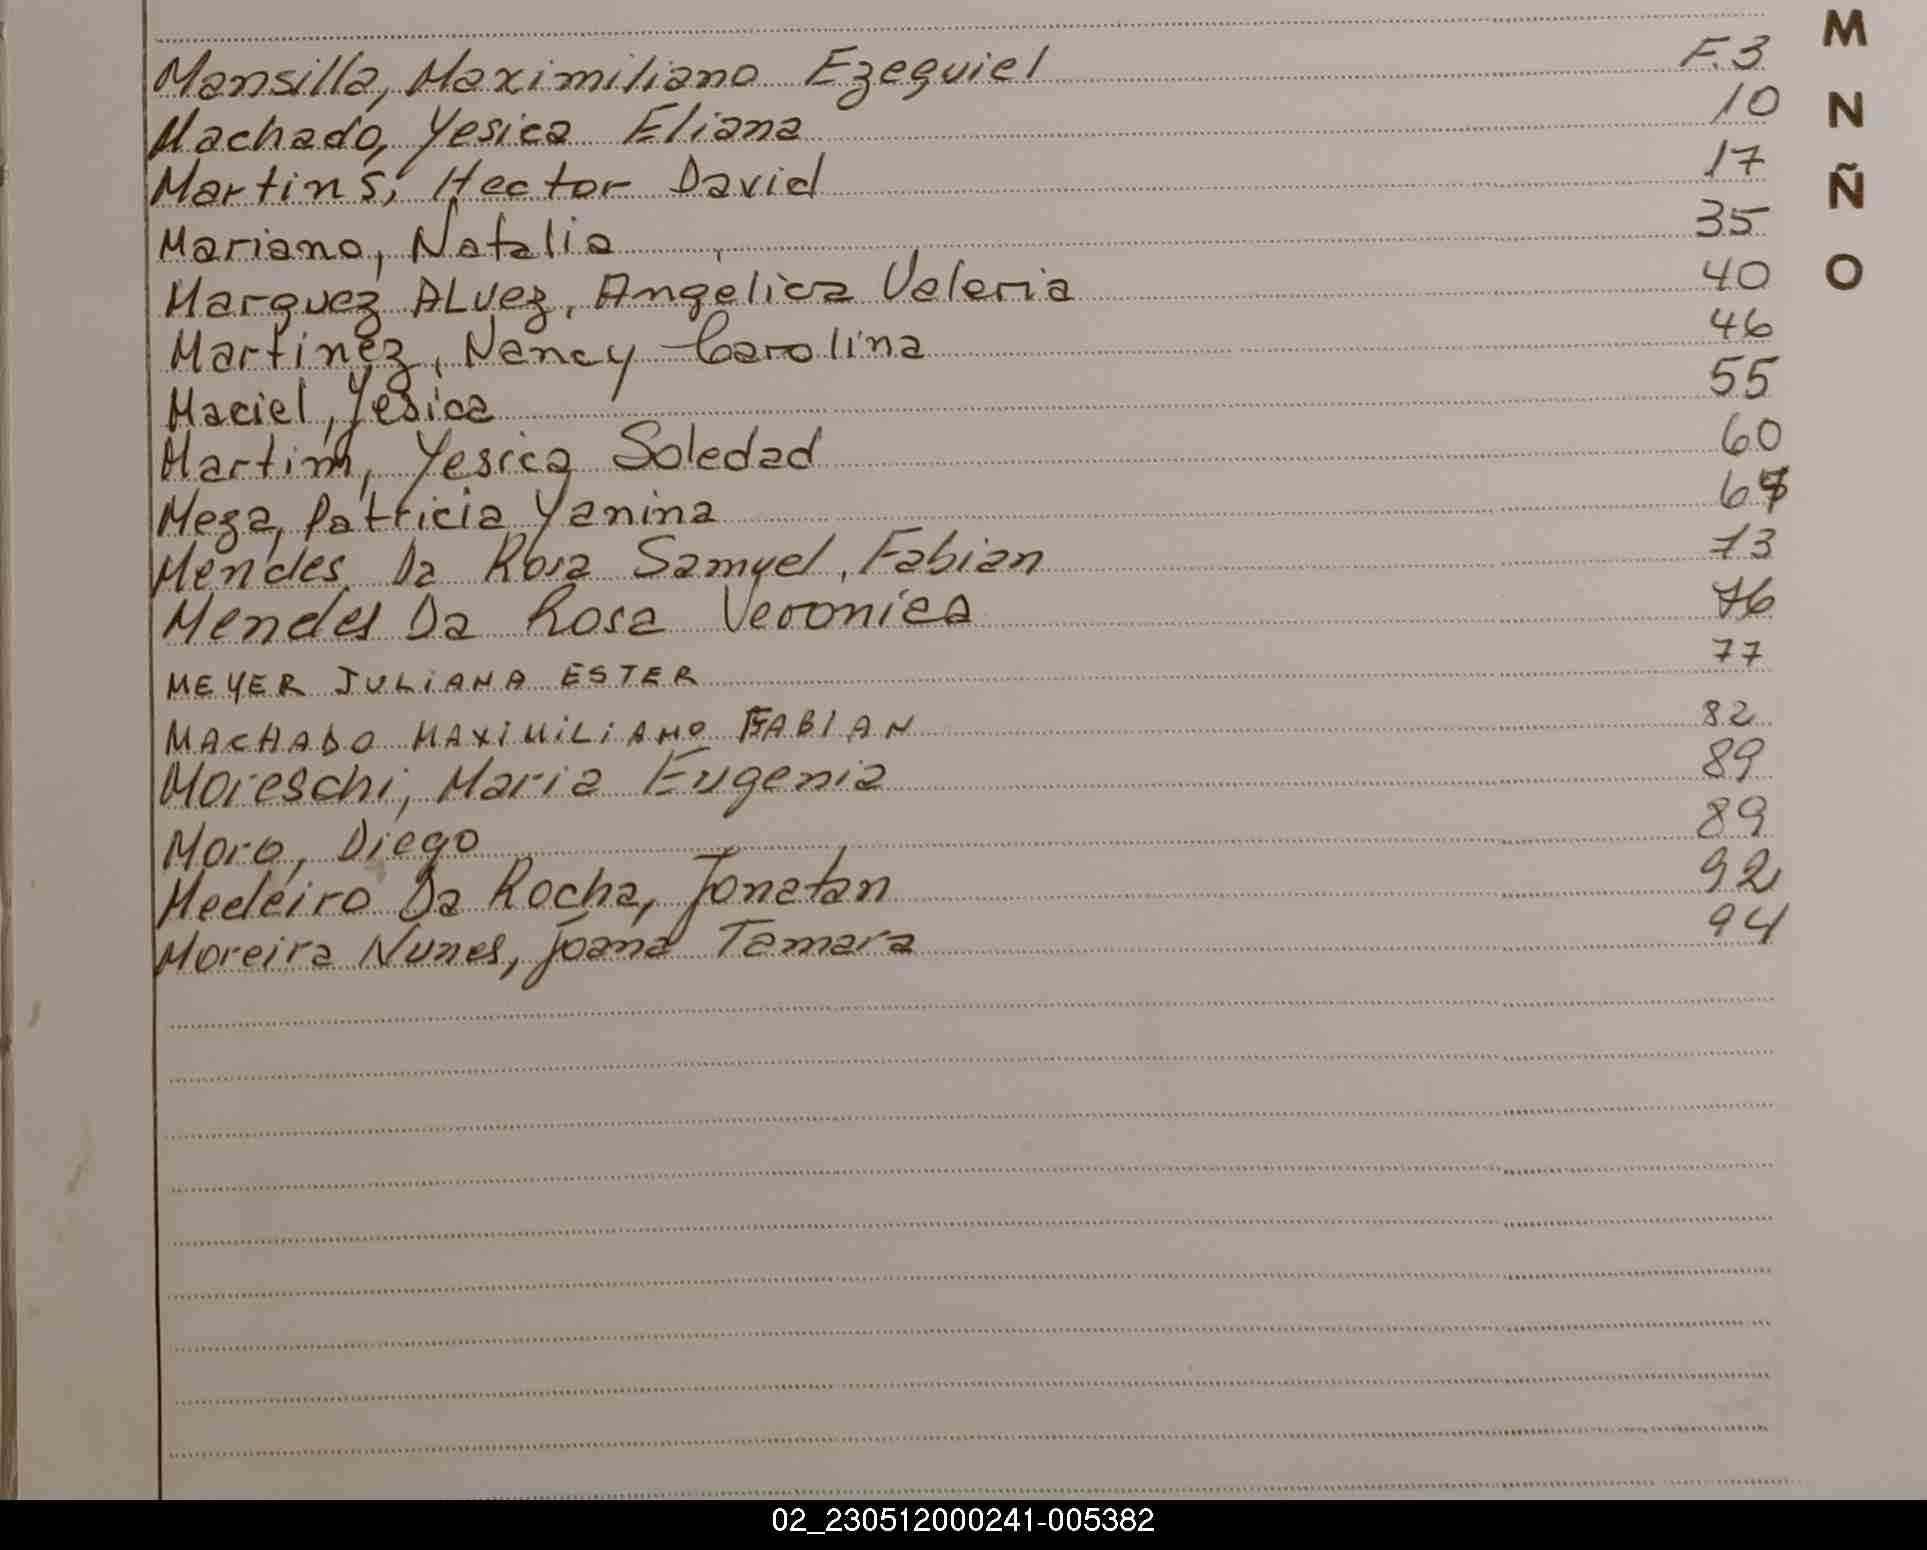 Mansilla, Maximiliano Ezequiel F.3
Machado, Yesica Eliana 10
Martins, Hector David 17
Mariano, Natalia 35
Marquez ALvez, Angelica Valeria 40
Martinez, Nancy Carolina 46
Maciel, Yesica 55
Martim, Yesica Soledad 60
Meza, Patricia Yanina
Mendes Da Rosa Samuel, Fabian 73
Mendes Da Rosa Veronica 76
MEYER JULIANA ESTER 77
MACHADO MAXIMILIANO FABIAN 82
Moreschi, Maria Eugenia 89
Moro, Diego 89
Medeiro Da Rocha, Jonatan 92
Moreira Nunes, Joana Tamara 94
M
N
Ñ
O
02_230512000241-005382